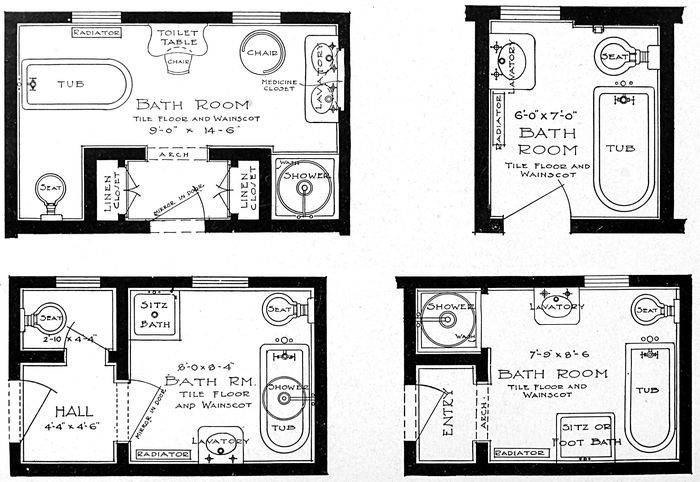 RADIATOR
TOILET
TABLE
CHAIR
CHAIR
LAVATORY
MEDICINE
CLOSET
TUB
BATH ROOM
TILE FLOOR AND WAINSCOT
9'-0" x 14-6"
ARCH
LINEN
CLOSET
MIRROR IN DOOR
LINEN
CLOSET
WASH
SHOWER
SEAT
LAVATORY
SEAT
RADIATOR
6'-0" x 7'-0"
BATH
ROOM
TILE FLOOR AND
WAINSCOT
TUB
SEAT
2'-10 x 4-4"
HALL
4'-4" x 4'-6"
SITZ
BATH
SEAT
8-0 x 8-4"
BATH RM.
TILE FLOOR
AND WAINSCOT
MIRROR IN DOOR
SHOWER
TUB
LAVATORY
RADIATOR
SHOWER
WASH
LAVATORY
SEAT
7'-9" x 8'-6
BATH ROOM
TILE FLOOR AND
WAINSCOT
TUB
ENTRY
ARCH
SITZ OR
FOOT BATH
RADIATOR